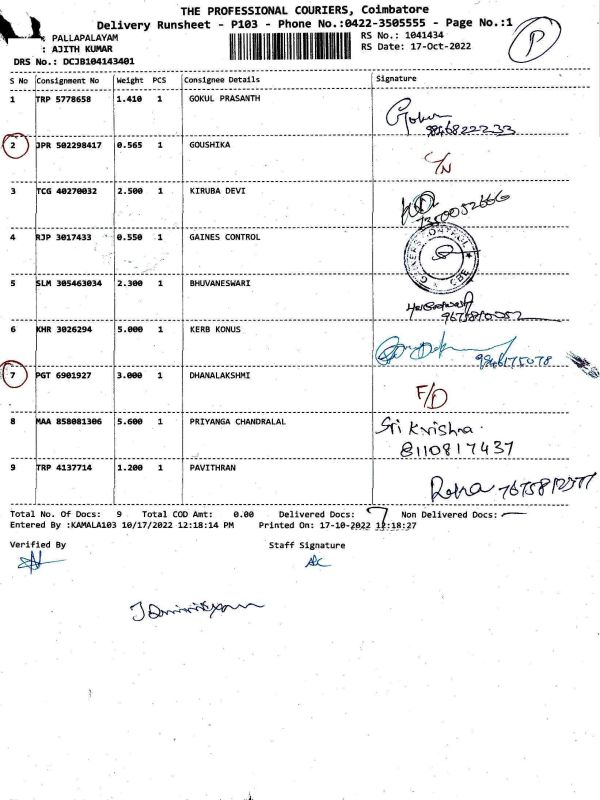 THE PROFESSIONAL COURIERS, Coimbatore
Delivery Runsheet - P103 - Phone No.:0422-3505555 - Page No.:1
: PALLAPALAYAM
: AJITH KUMAR
RS No.: 1041434
RS Date: 17-Oct-2022
P
DRS No.: DCJB104143401
S No Consignment No Weight PCS Consignee Details Signature
1 TRP 5778658 1.410 1 GOKUL PRASANTH
2 JPR 502298417 0.565 1 GOUSHIKA C/N
3 TCG 40270032 2.500 1 KIRUBA DEVI
4 RJP 3017433 0.550 1 GAINES CONTROL
5 SLM 305463034 2.300 1 BHUVANESWARI
6 KHR 3026294 5.000 1 KERB KONUS
9846175078
7 PGT 6901927 3.000 1 DHANALAKSHMI F/D
8 MAA 858081306 5.600 1 PRIYANGA CHANDRALAL Sri Krishna
8110817437
9 TRP 4137714 1.200 1 PAVITHRAN
Total No. Of Docs: 9 Total COD Amt: 0.00 Delivered Docs: 7 Non Delivered Docs: —
Entered By :KAMALA103 10/17/2022 12:18:14 PM Printed On: 17-10-2022 12:18:27
Verified By Staff Signature